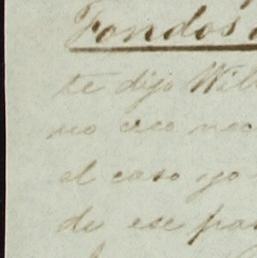 Fondos
te dijo Wil
no creo nec
el caso yo
de ese par